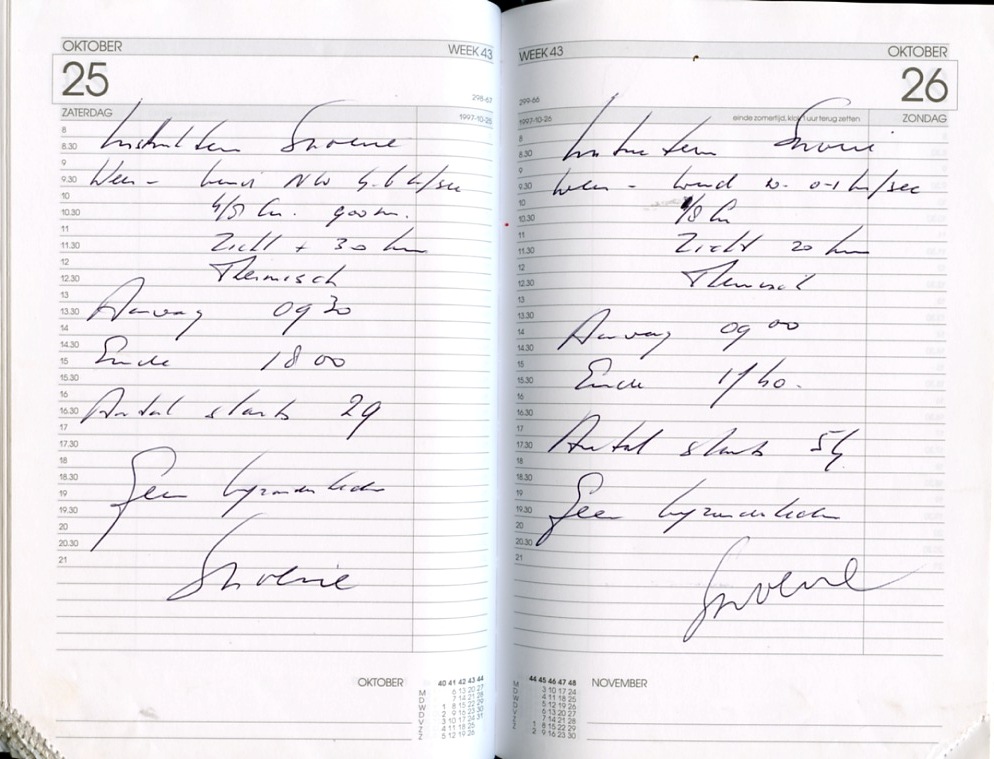 OKTOBER WEEK 43
25
298-67
ZATERDAG 1997-10-25
8
8.30 Snoeie
9
9.30 Weer - NW m/sec
10 4/8 Cu. 900 m.
10.30
11
11.30 Zicht + 30 km
12
12.30 Thermisch
13
13.30 Aanvang 09 30
14
14.30
15 Einde 18 00
15.30
16
16.30 Aantal starts 29
17
17.30
18
18.30 Geen bijzonderheden
19
19.30
20
20.30
21 Snoeie
OKTOBER
40 41 42 43 44
M 6 13 20 27
D 7 14 21 28
W 1 8 15 22 29
D 2 9 16 23 30
V 3 10 17 24 31
Z 4 11 18 25
Z 5 12 19 26
WEEK 43 OKTOBER
26
299-66
1997-10-26 einde zomertijd, klok 1 uur terug zetten ZONDAG
8
8.30 Snoeie
9
9.30 Weer - wind 0-1 m/sec
10 1/8 Cu
10.30
11
11.30 Zicht 20 km
12
12.30 Thermisch
13
13.30
14 Aanvang 09 00
14.30
15
15.30 Einde 17 40.
16
16.30
17
17.30 Aantal starts 54
18
18.30
19
19.30 Geen bijzonderheden
20
20.30
21
Snoeie
44 45 46 47 48 NOVEMBER
M 3 10 17 24
D 4 11 18 25
W 5 12 19 26
D 6 13 20 27
V 7 14 21 28
Z 1 8 15 22 29
Z 2 9 16 23 30